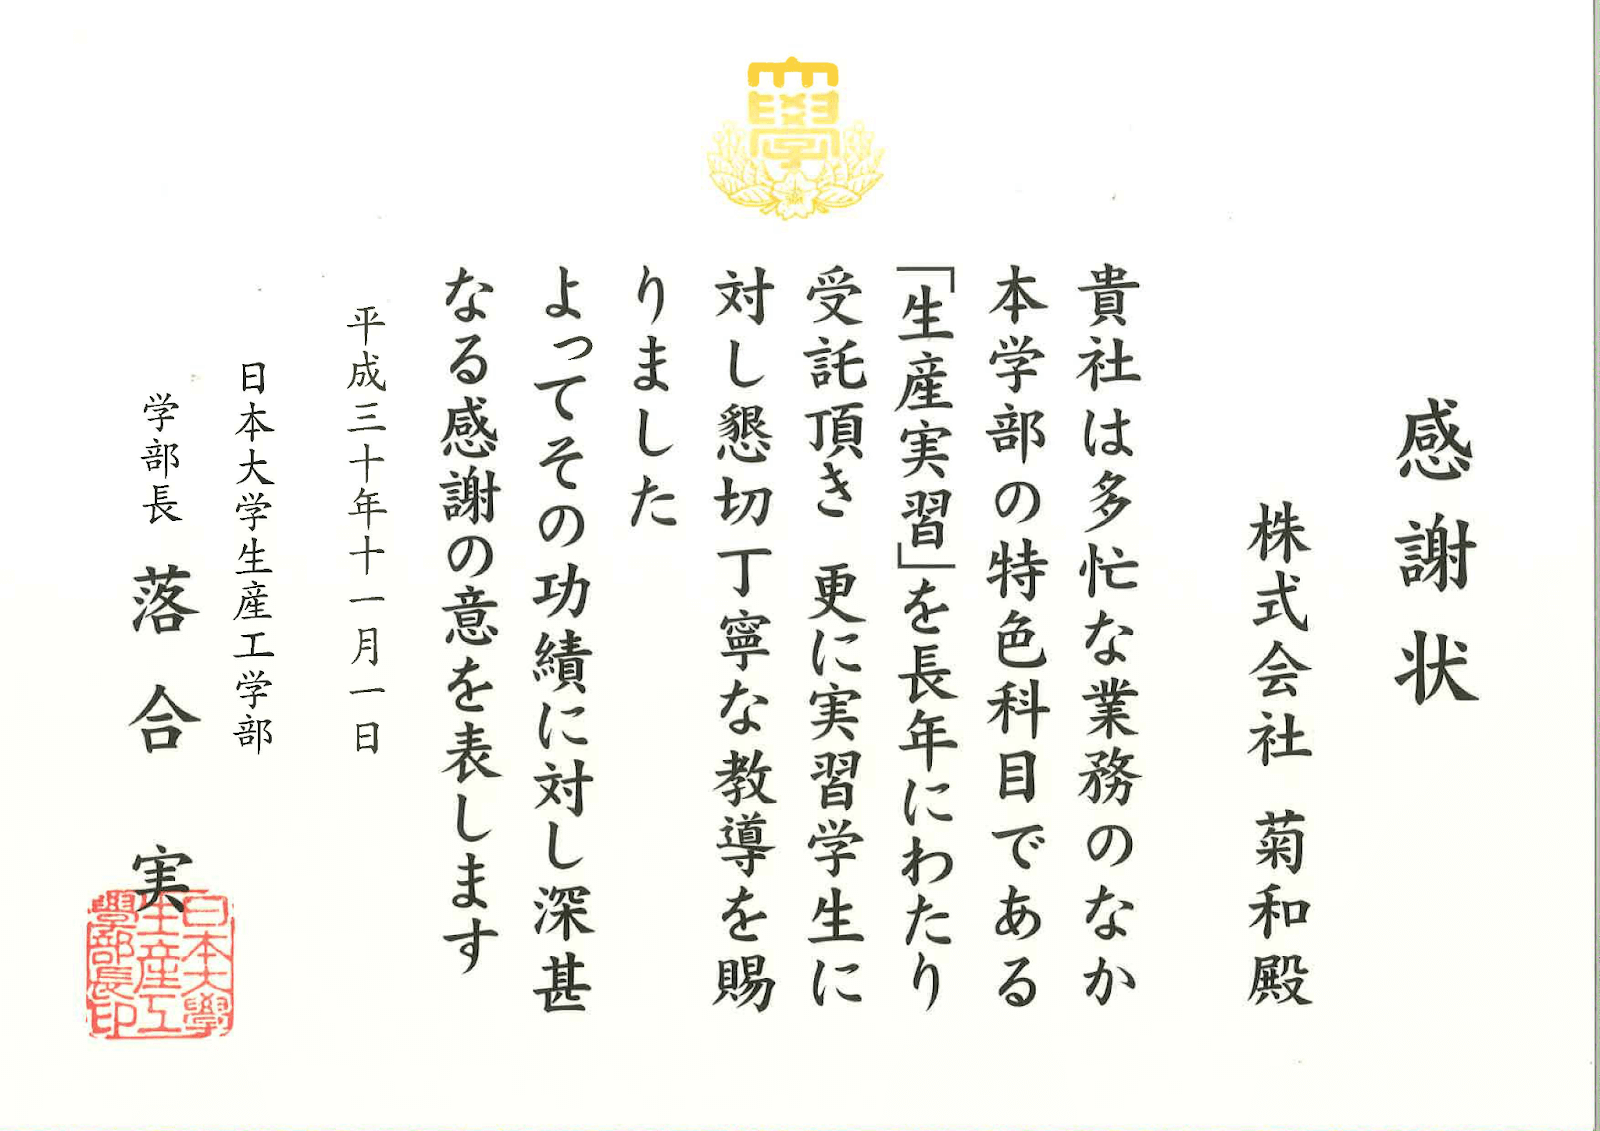 大學
感謝状
株式会社 菊和殿
貴社は多忙な業務のなか
本学部の特色科目である
「生産実習」を長年にわたり
受託頂き 更に実習学生に
対し懇切丁寧な教導を賜
りました
よってその功績に対し深甚
なる感謝の意を表します
平成三十年十一月一日
日本大学生産工学部
学部長 落合 実
日本大學
生産工
學部長印